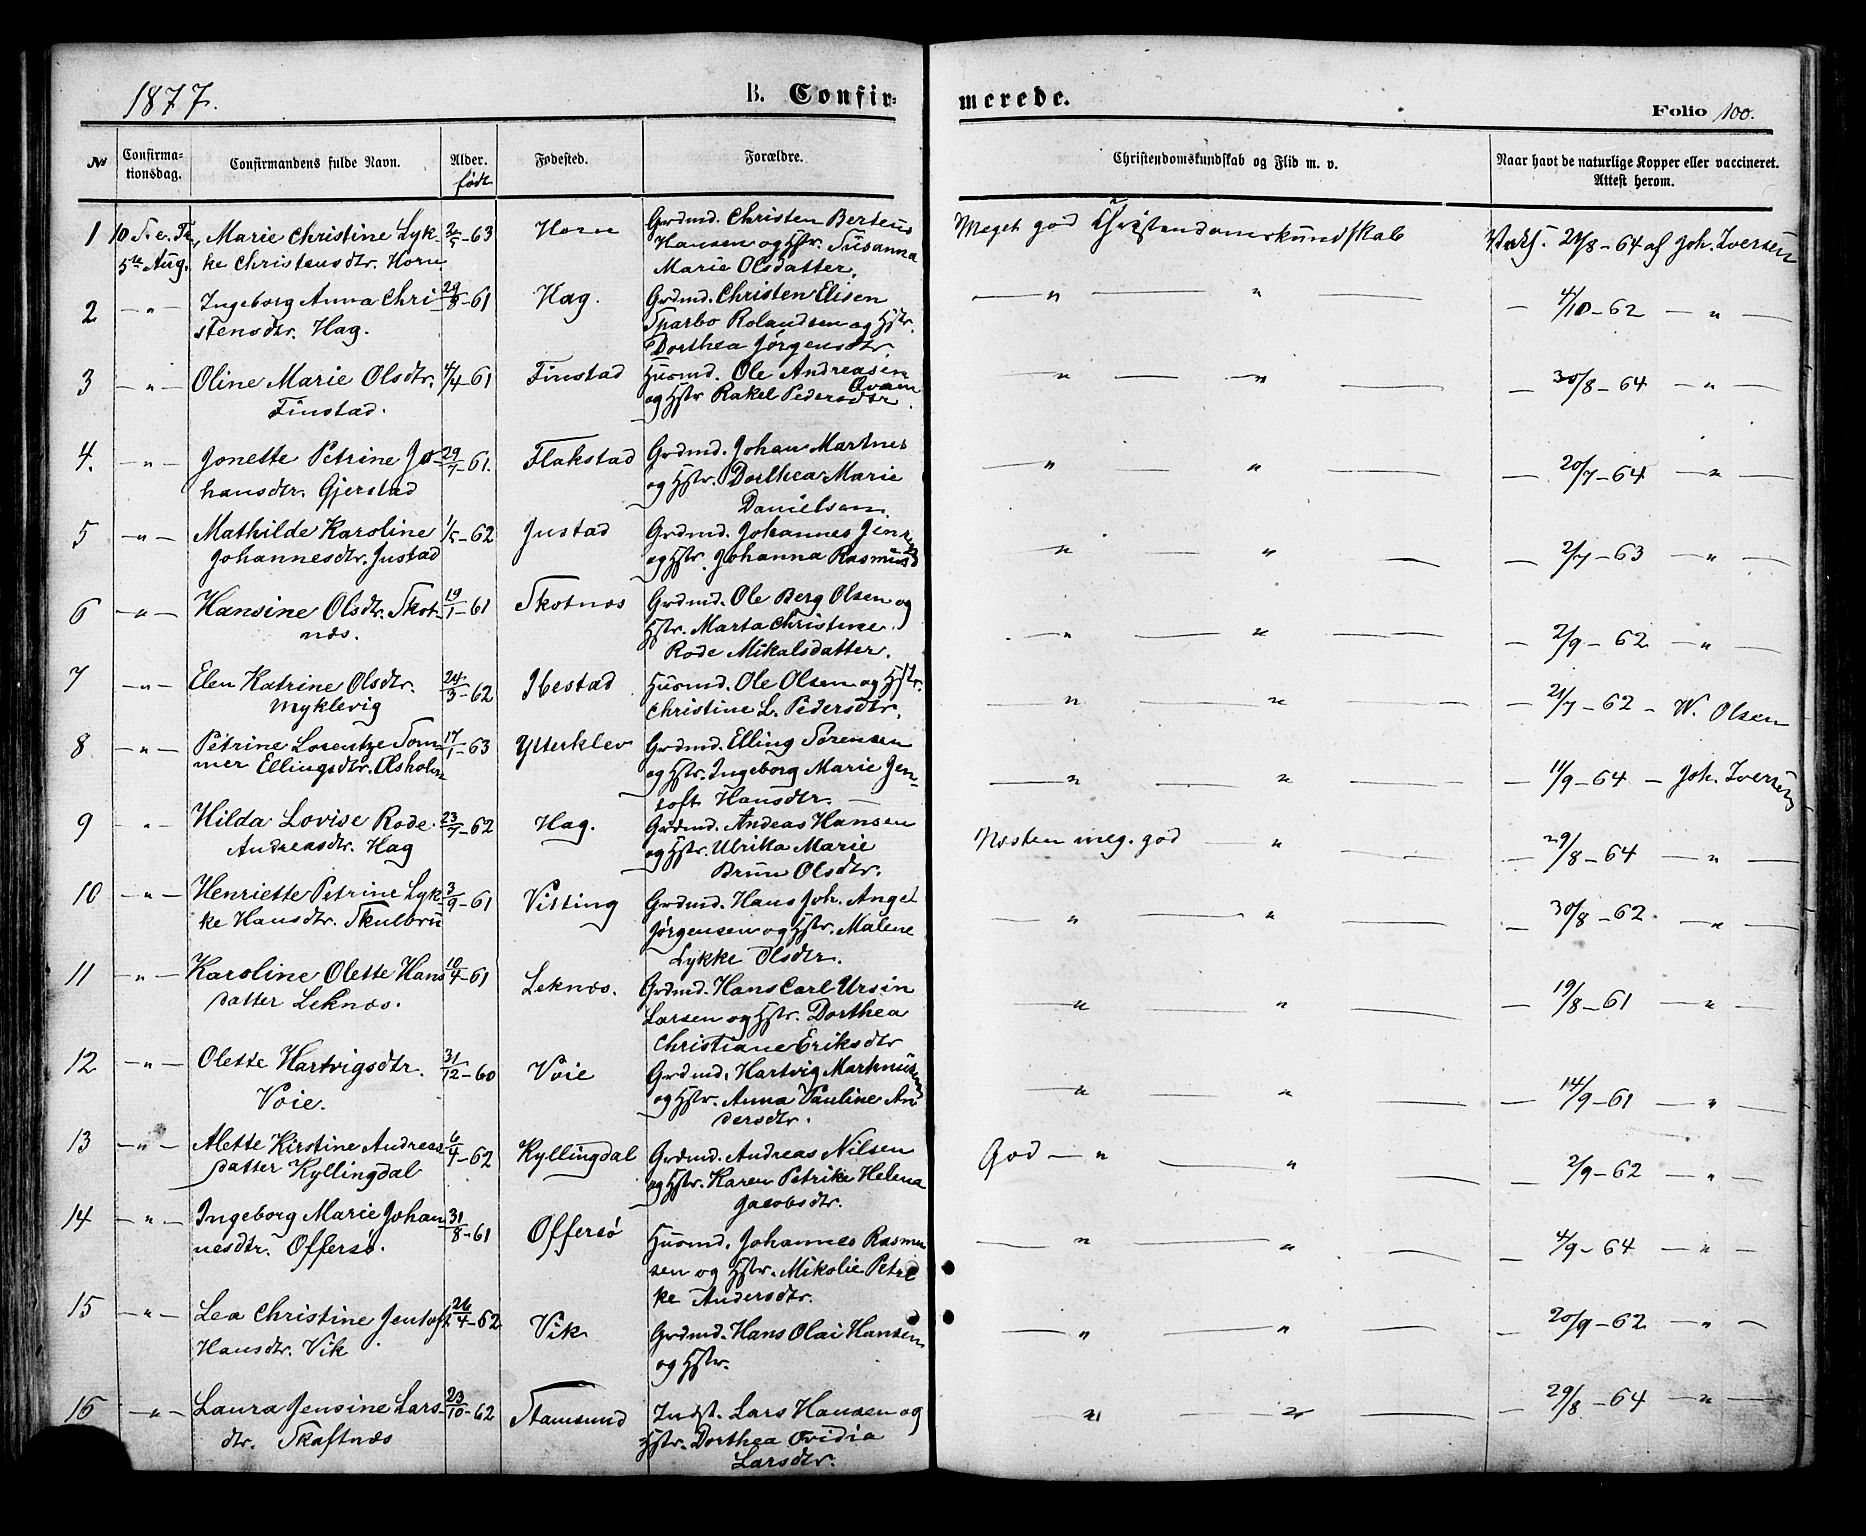 1877.
B. Confir-
merede.
Folio 100.
No
Confirma-
tionsdag.
Confirmandens fulde Navn.
Alder.
født
Fødested.
Forældre.
Christendomskundskab og Flid m. v.
Naar havt de naturlige Kopper eller vaccineret.
Attest herom.
1 10 S. e. Tr., Marie Christine Lyk- 2/5-63 Horn Grdmd. Christen Berteus Meget god Christendomskundskab Vaks. 24/8-64 af Joh. Iversen
5te Aug. ke Christensdtr. Horn Hansen og Hstr. Susanna
Marie Olsdatter.
2 -"- Ingeborg Anna Chri 29/9-61 Hag. Grdmd. Christen Elisen -"- " - - 4/10-62 -"-
stensdtr. Hag. Sparbo Rolandsen og Hstr.
Dorthea Jørgensdtr.
3 -"- Oline Marie Olsdtr. 4/4-61 Finstad Husmd. Ole Andreasen " - " - - 30/8-64 -"-
Finstad. Qvam
og Hstr Rakel Pedersdtr.
4. -"- Jonette Petrine Jo- 29/7-61. Flakstad Grdmd. Johan Martines -"- " - - 20/7-64 -"-
hansdtr. Gjerstad og Hstr. Dorthea Marie
Danielsen.
5 -"- Mathilde Karoline 1/5-62 Justad Grdmd. Johannes Jensen -"- " - - 2/7-63 -"-
Johannesdtr. Justad og Hstr. Johanna Rasmusd
6 -"- Hansine Olsdtr. Skot- 19/1-61 Skotnæs Grdmd. Ole Berg Olsen og -"- " - - 2/9-62 -"-
næs. Hstr. Marta Christine
Rode Mikalsdatter.
7 -"- Elen Katrine Olsdtr. 24/3-62 Ibestad Husmd. Ole Olsen og Hstr. " - " - - 21/7-62 - W. Olsen
Myklevig Christine L. Pedersdtr.
8 -"- Petrine Lorentze Som 17/1-63 Ytterklev Grdmd. Elling Sørensen -"- " - - 11/9-64 - Joh. Iversen
mer Ellingsdtr. Olsholm og Hstr. Ingeborg Marie Jen-
toft Hansdtr.
9 " Hilda Lovise Rode 23/7-62 Hag. Grdmd. Andeas Hansen Næsten meg. god - " - - 29/8-64 -"-
Andreasdtr. Hag og Hstr. Ulrika Marie
Brun Olsdtr.
10 -"- Henriette Petrine Lyk- 3/9-61 Vitting Grdmd. Hans Joh. Angel -"- " - - 30/8-62 -"-
ke Hansdtr. Skulbru Jørgensen og Hstr. Malene
Lykke Olsdtr.
11 -"- Karoline Olette Hans 10/4-61 Leknæs. Grdmd. Hans Carl Ursin -"- " - - 19/8-61 -"-
datter Leknæs. Larsen og Hstr. Dorthea
Christiane Eriksdtr
12 -"- Olette Hartvigsdtr. 31/12-60 Voie Grdmd. Hartvig Martinusen -"- " - - 14/9-61 -"-
Voie. og Hstr. Anna Pauline An
dersdtr.
13 -"- Alette Kirstine Andreas 6/4-62 Kyllingdal Grdmd. Andreas Nilsen God -" - " - - 2/9-62 -"-
datter Kyllingdal og Hstr. Karen Petrike Helena
Jacobsdtr.
14 -"- Ingeborg Marie Johan 31/8-61 Offersø Husmd. Johannes Rasmu -"- " - - 4/9-64 -"-
nesdtr. Offersø. sen og Hstr. Mikolie Petri
ke Andersdtr.
15 -"- Lea Christine Jentoft 26/4-62 Vik Grdmd. Hans Olai Hansen -"- " - - 20/9-62 -"-
Hansdtr. Vik og Hstr.
16 -"- Laura Jensine Lars- 23/10-62 Stamsund Indst. Lars Hansen og " - " - - 29/8-64 -"-
dtr. Skaftnæs Hstr. Dorthea Ovidia
Larsdtr.